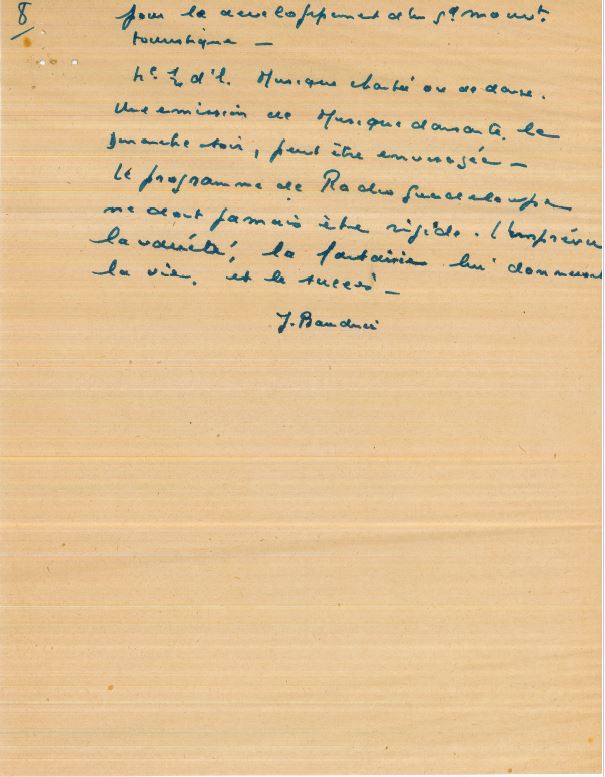 8
pour le developpement d'un gd mouvt.
touristique —
d'h. Musique chantée ou de danse.
Une emission de Musique dansante, le
Dimanche soir, peut être envisagée —
Le programme de Radio Guadeloupe
ne doit jamais être rigide. L'imprévu
la variété, la fantaisie lui donneront
la vie, et le succès —